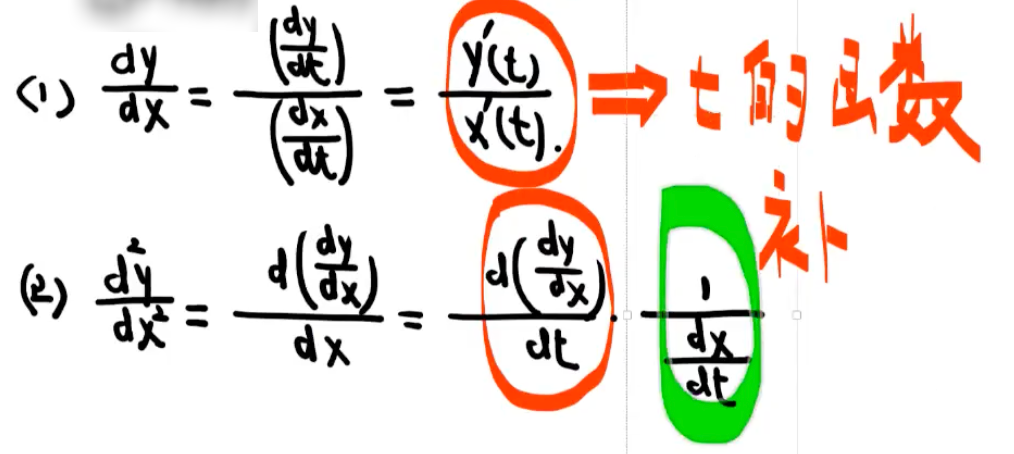 (1) dy/dx = (dy/dt)/(dx/dt) = y'(t)/x'(t). ⇒ t的函数
补
(2) d²y/dx² = d(dy/dx)/dx = d(dy/dx)/dt · 1/(dx/dt)